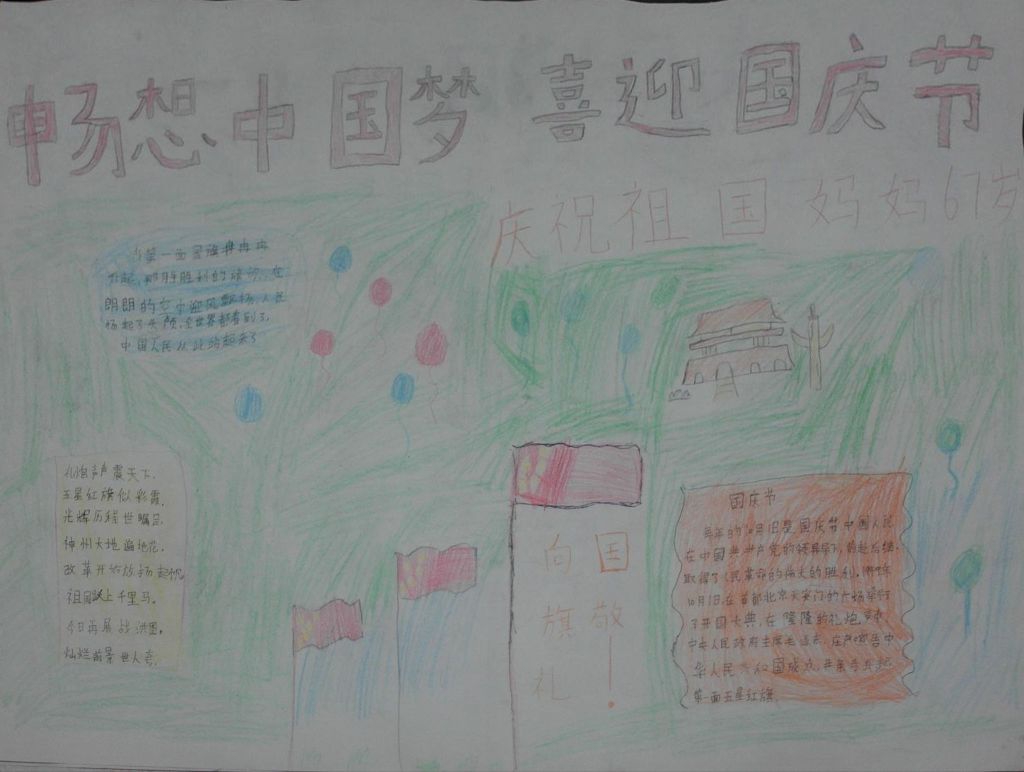 畅想中国梦 喜迎国庆节
庆祝祖国妈妈67岁
当第一面
朗朗的
中国人民从此站起来了
礼炮声声震天下,
五星红旗似彩霞。
光辉历程世瞩目,
神州大地遍地花。
改革开放
祖国送上千里马。
今日再展战洪图,
灿烂前景世人夸。
向国
旗敬
礼!
国庆节
每年的10月1日是国庆节中国人民
在中国共产党的领导下,前赴后继
取得了人民革命的伟大的胜利,1949年
10月1日,在首都北京天安门的广场举行
了开国大典,在隆隆的礼炮声中,
中央人民政府主席毛泽东,庄严宣告中
华人民共和国成立,并亲手升起
第一面五星红旗